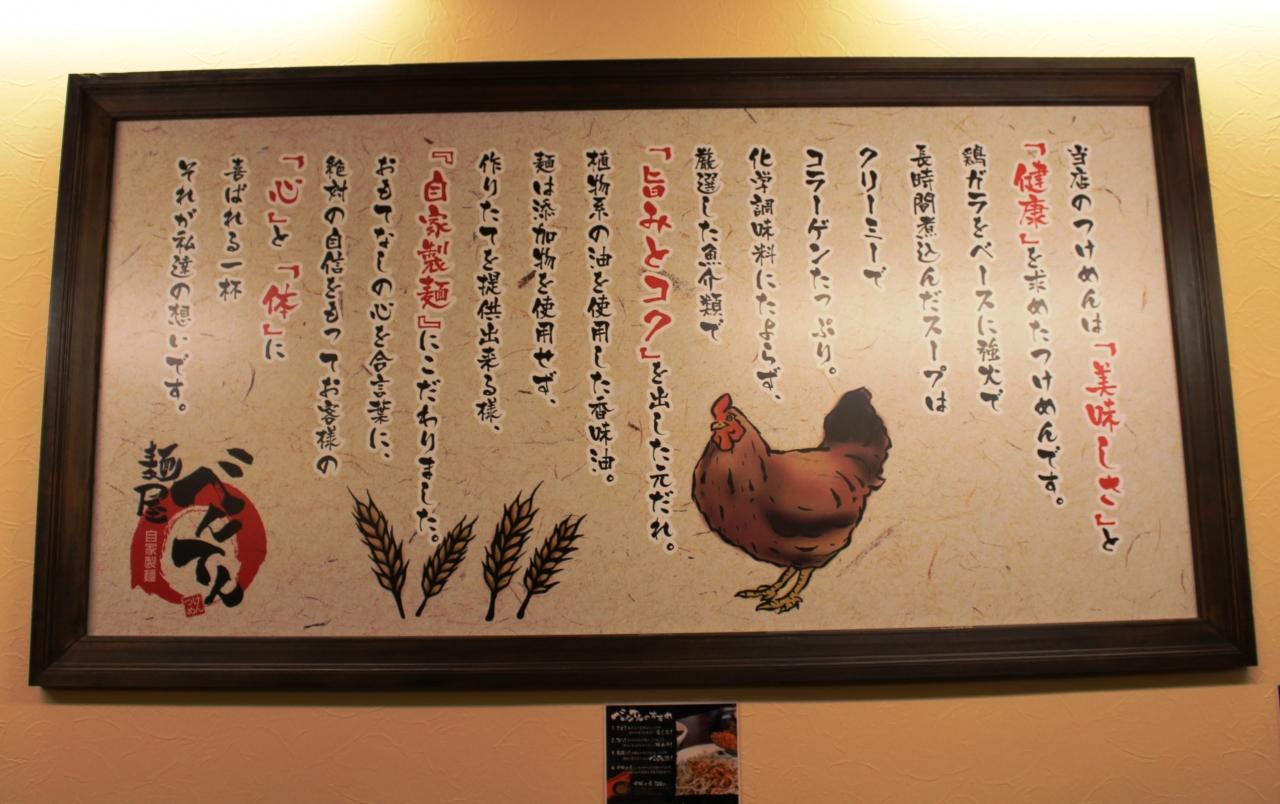 当店のつけめんは「美味しさ」と
「健康」を求めたつけめんです。
鶏ガラをベースに強火で
長時間煮込んだスープは
クリーミーで
コラーゲンたっぷり。
化学調味料にたよらず、
厳選した魚介類で
「旨みとコク」を出した元だれ。
植物系の油を使用した香味油。
麺は添加物を使用せず、
作りたてを提供出来る様、
『自家製麺』にこだわりました。
おもてなしの心を合言葉に、
絶対の自信をもってお客様の
「心」と「体」に
喜ばれる一杯
それが私達の想いです。
麺屋
べんてん
自家製麺
つけめん